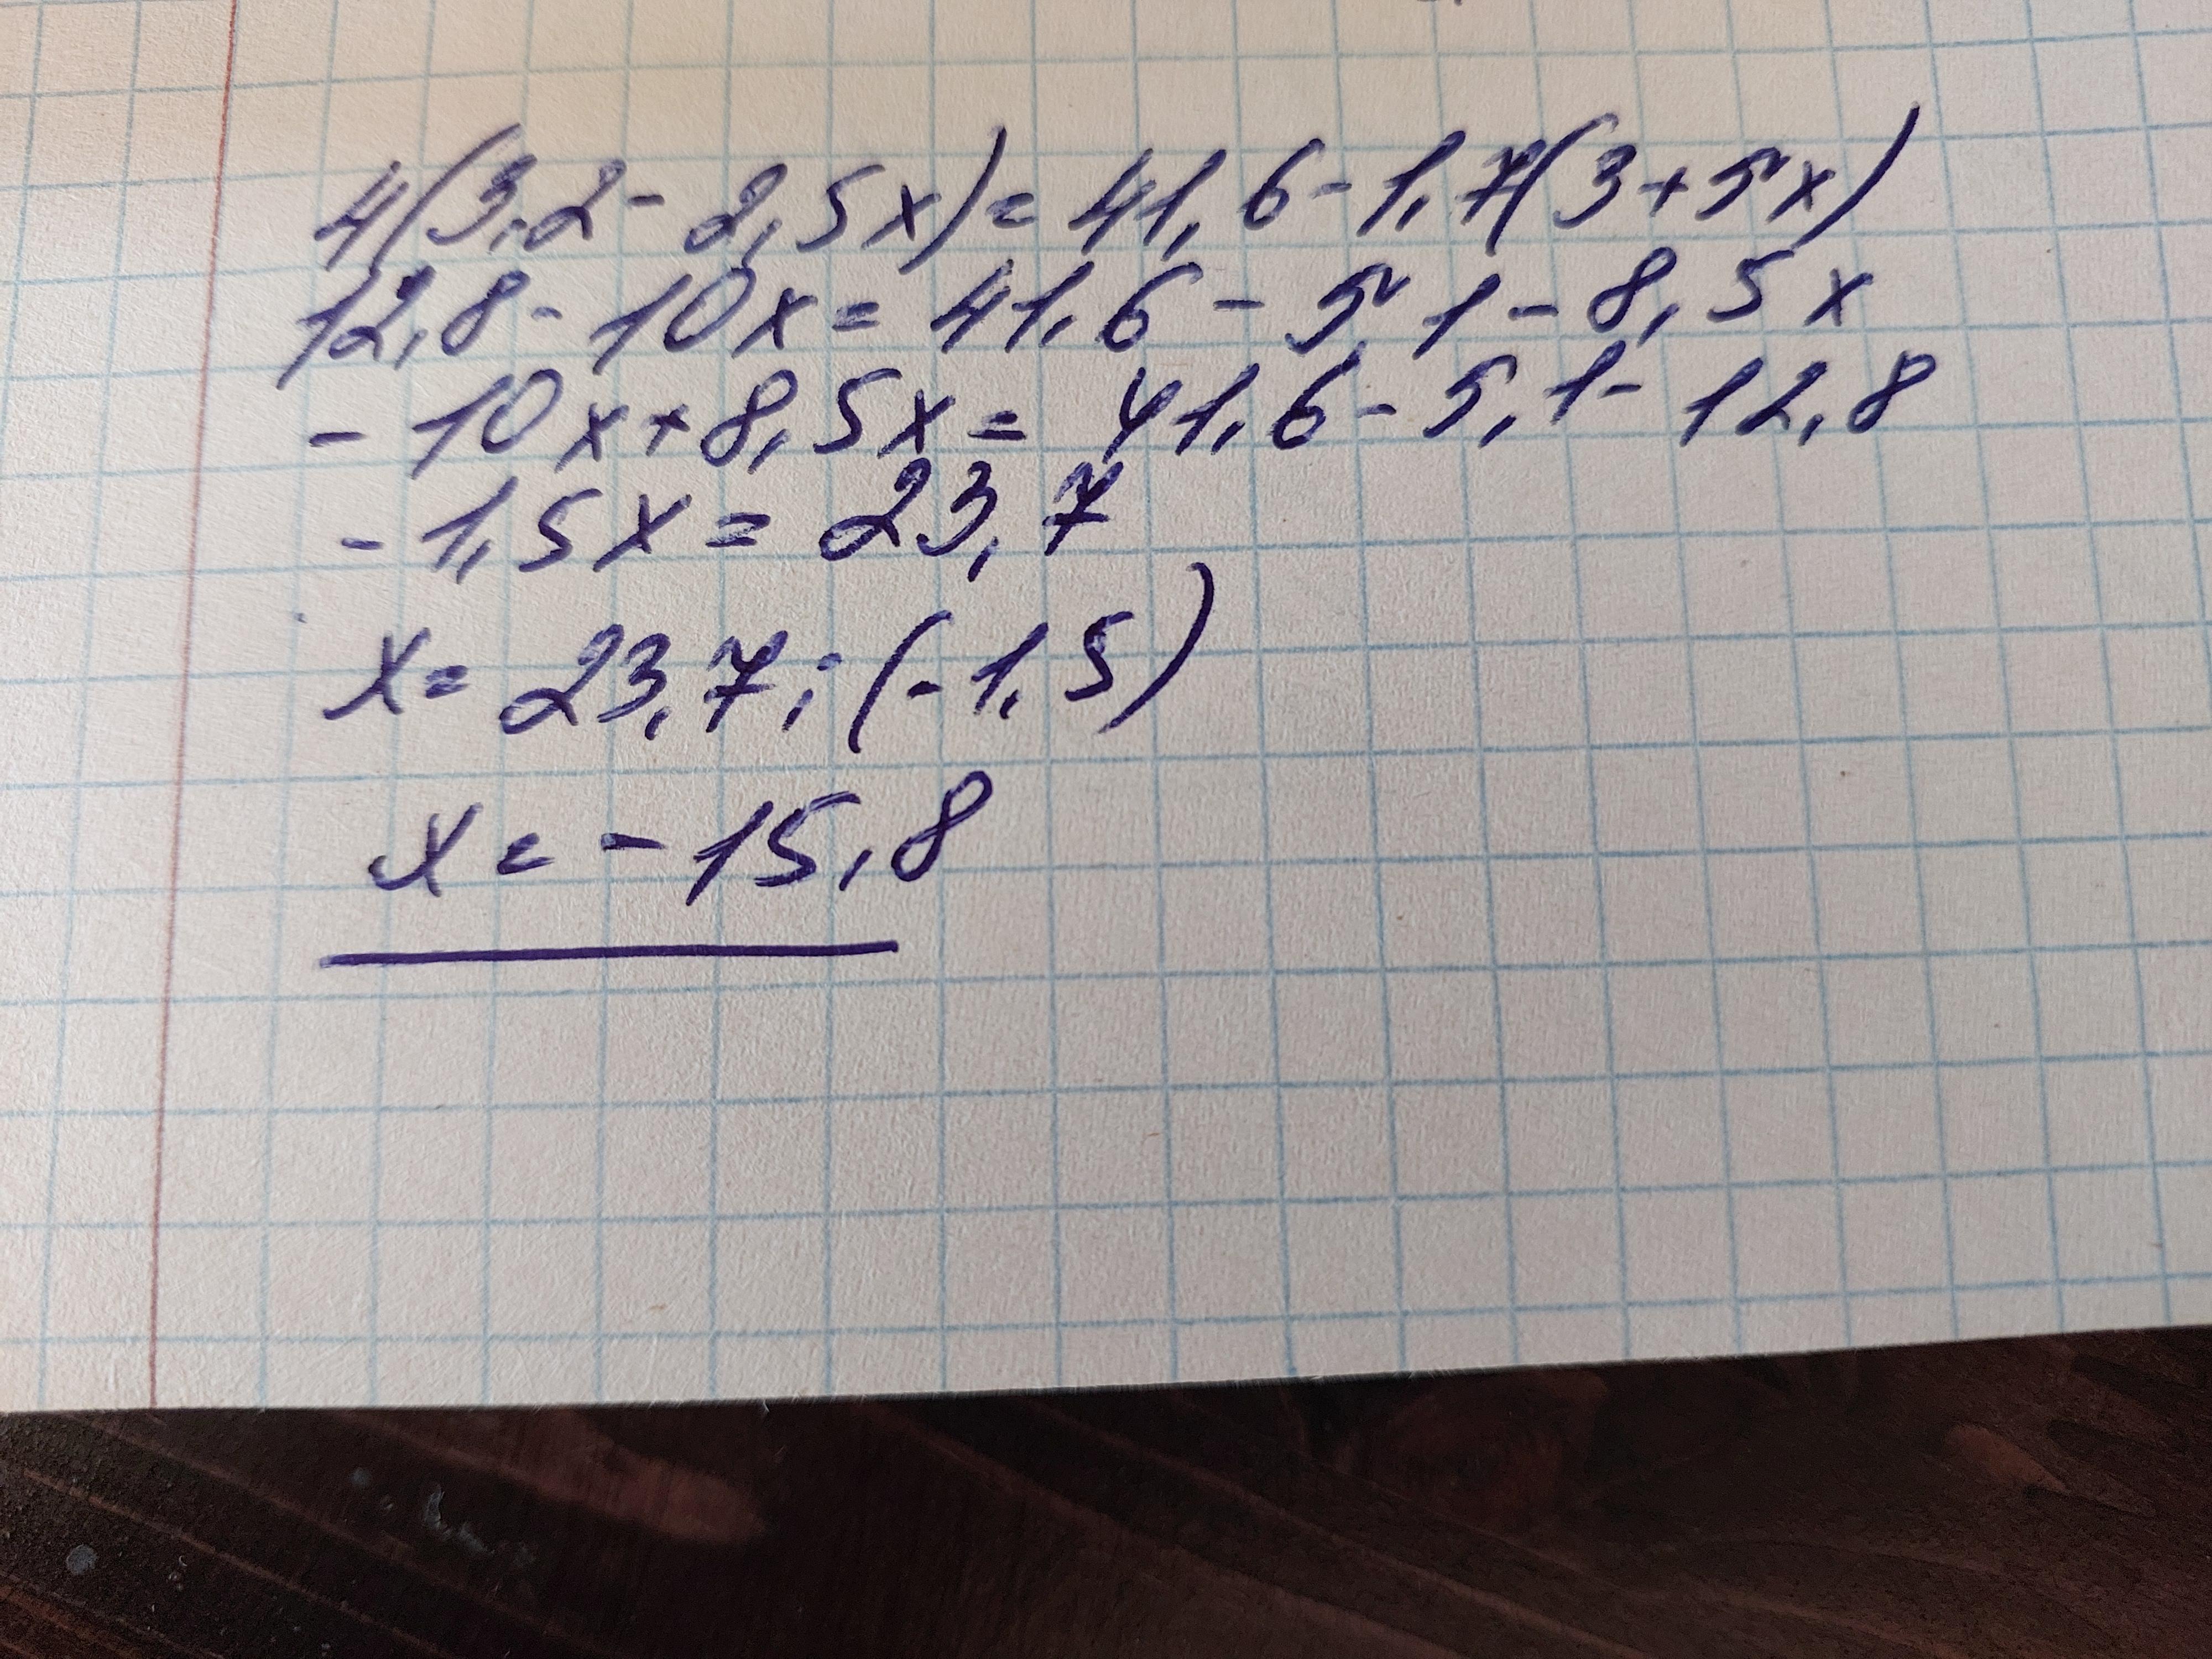 4(3,2-2,5x)=41,6-1,7(3+5x)
12,8-10x=41,6-5,1-8,5x
-10x+8,5x=41,6-5,1-12,8
-1,5x=23,7
x=23,7:(-1,5)
x=-15,8